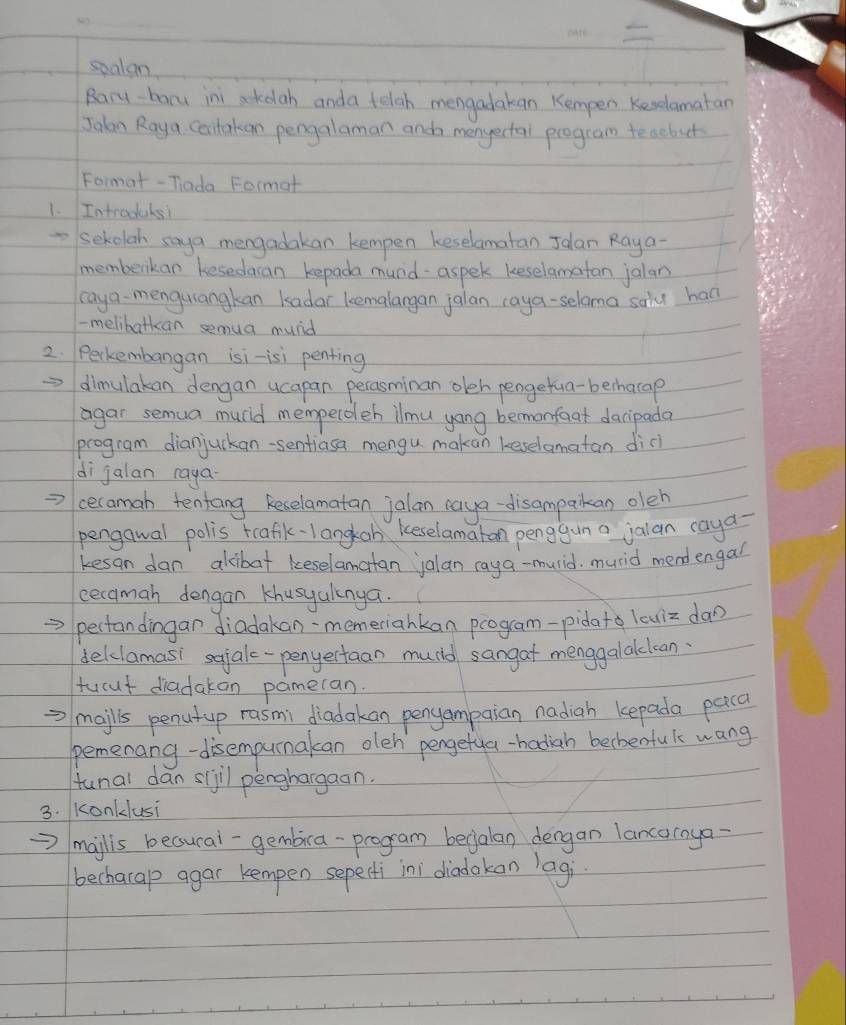 NO
DATE
soalan
Baru-baru ini sekolah anda telah mengadakan Kempen Keselamatan
Jalan Raya. Ceritakan pengalaman anda menyertai program tersebut
Format - Tiada Format
1. Introduksi
→ Sekolah saya mengadakan kempen keselamatan Jalan Raya-
memberikan kesedaran kepada murid-aspek keselamatan jalan
raya-mengurangkan kadar kemalangan jalan raya-selama satu hari
-melibatkan semua murid
2. Perkembangan isi-isi penting
→ dimulakan dengan ucapan perasminan oleh pengetua-berharap
agar semua murid memperoleh ilmu yang bermanfaat daripada
program dianjurkan-sentiasa mengu makan keselamatan diri
di jalan raya-
→ ceramah tentang keselamatan jalan raya-disampaikan oleh
pengawal polis trafik-langkah keselamatan pengguna jalan raya-
kesan dan akibat keselamatan jalan raya-murid. murid mendengar
ceramah dengan khusyuknya.
→ pertandingan diadakan-memeriahkan program-pidato kuiz dan
deklamasi sajak-penyertaan murid sangat menggalakkan-
turut diadakan pameran.
→ majlis penutup rasmi diadakan penyampaian nadiah kepada para
pemenang-disempurnakan oleh pengetua-hadiah berbentuk wang
tunai dan sijil penghargaan.
3. Konklusi
→ majlis becurai-gembira-program berjalan dengan lancarnya-
berharap agar kempen seperti ini diadakan lagi.